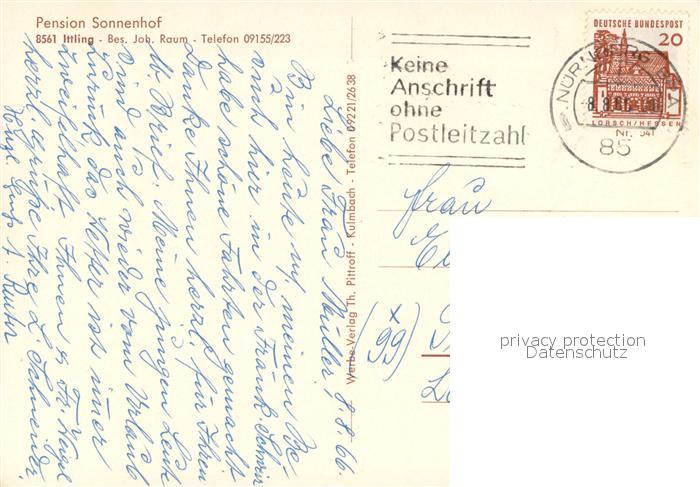 Pension Sonnenhof
8561 Ittling - Bes. Joh. Raum - Telefon 09155/223
Liebe Frau Müller, 8.8.66.
Bin heute m. meinen Be-
such hier in der Fränk. Schweiz
habe schöne Fahrten gemacht
Danke Ihnen herzl. für Ihren
lb. Brief. Meine jungen Leute
sind auch wieder vom Urlaub
zurück. Das Wetter ist immer
zweifelhaft. Ihnen u. Fr. Vogel
herzl. Grüße Ihre L. Schneider
Herzl. Gruß
Werbe-Verlag Th. Pittroff - Kulmbach - Telefon 09221/2638
Keine
Anschrift
ohne
Postleitzahl
DEUTSCHE BUNDESPOST
20
LORSCH/HESSEN
NÜRNBERG
8.8.66
85
Nr. 541
Frau
(x
99)
privacy protection
Datenschutz